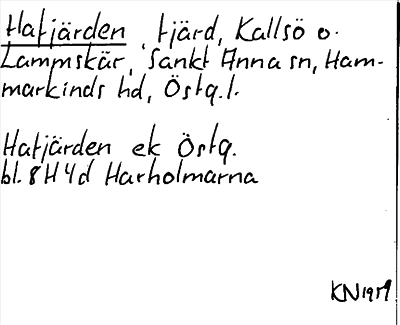 Hafjärden fjärd, Kallsö o.
Lammskär, Sankt Anna sn, Ham-
markinds hd, Östg. l.
Hafjärden ek Östg.
bl. 8H4d Harholmarna
KN